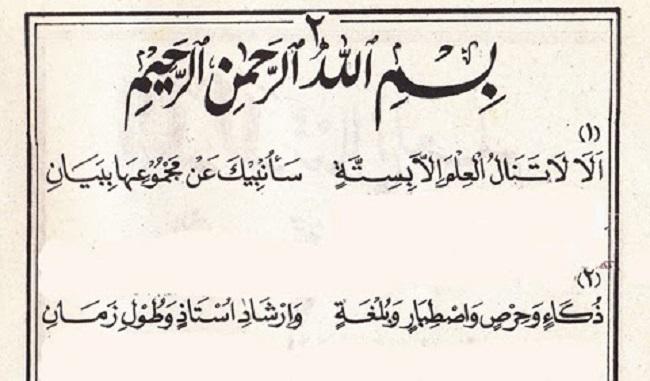 ٢
بِسْمِ اللهِ الرَّحْمٰنِ الرَّحِيْمِ
(١)
اَلَا لَا تَنَالُ الْعِلْمَ اِلَّا بِسِتَّةٍ سَأُنْبِيْكَ عَنْ مَجْمُوْعِهَا بِبَيَانِ
(٢)
ذُكَاءٍ وَحِرْصٍ وَاصْطِبَارٍ وَبُلْغَةٍ وَاِرْشَادِ اُسْتَاذٍ وَطُوْلِ زَمَانِ